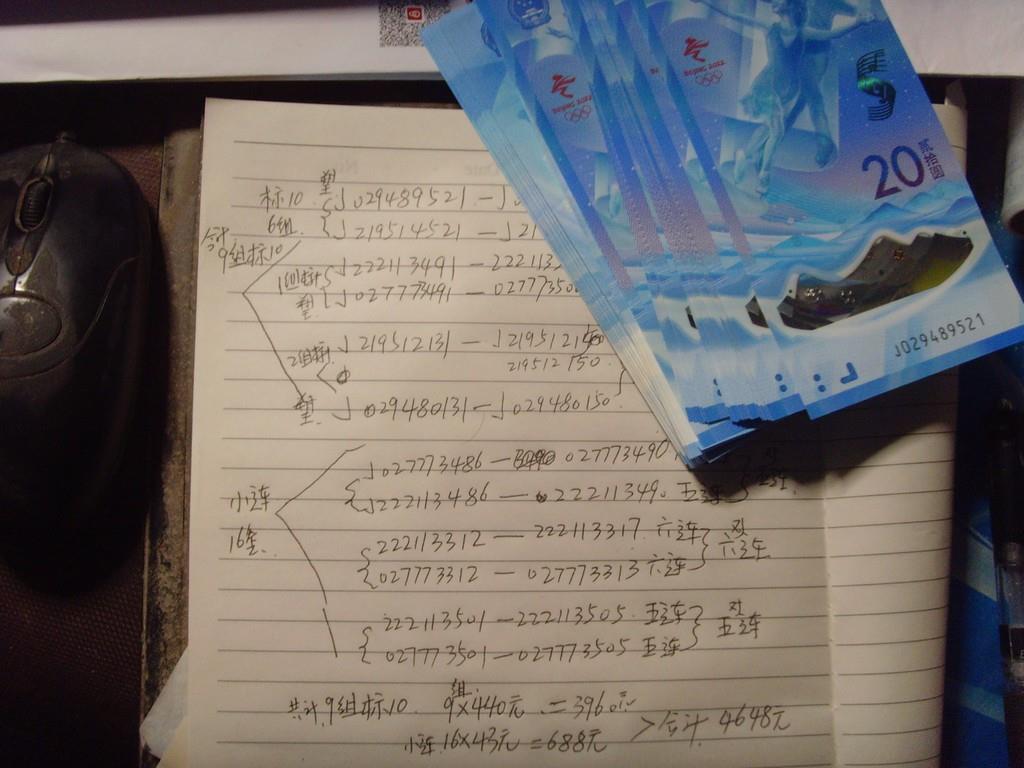 标10 塑 J029489521 — J0
6组 J219514521 — J21
合计
9组标10
1组标 J222113491 — 222113
塑 J027773491 — 02777350
2组标 J219512131 — J219512150
219512150
塑 J029480131 — J029480150
J027773486 — 027773490 对
J222113486 — 222113490 五连 五连
小连
16套
222113312 — 222113317 六连 对
027773312 — 027773313 六连 六连
222113501 — 222113505 五连 对
027773501 — 027773505 五连 五连
共计9组标10 9组×440元 = 3960元
小连 16×43元 = 688元 > 合计 4648元
BEIJING 2022
BEIJING 2022
20
贰拾圆
J029489521